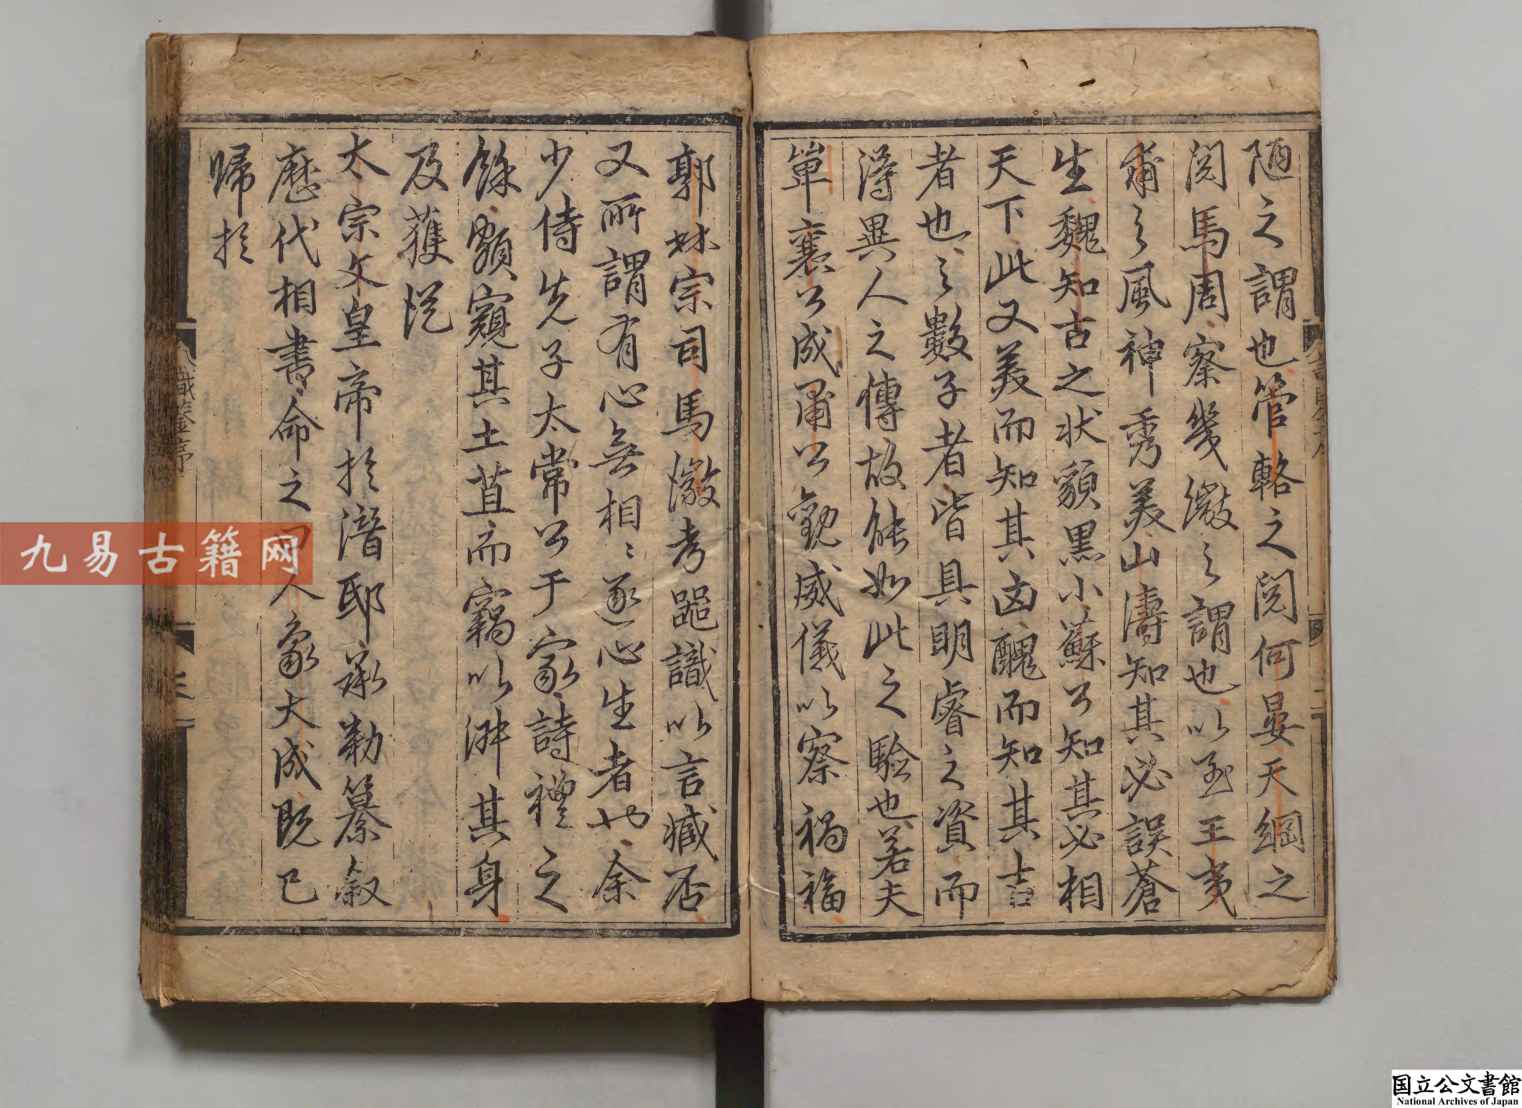 陋之謂也管輅之閱何晏天綱之
閱馬周察幾微之謂也以至王夷
甫之風神秀美山濤知其必誤蒼
生魏知古之状貌黒小蘇公知其必相
天下此又美而知其凶醜而知其吉
者也之數子者皆具明睿之資而
得異人之傳故能如此之驗也若夫
單襄公成肅公觀威儀以察禍福
郭林宗司馬徽考器識以言臧否
又所謂有心無相相遂心生者也余
少侍先子太常公于家詩禮之
餘頗窺其土苴而竊以淑其身
及獲從
太宗文皇帝於潛邸承勅纂叙
歷代相書命之曰人象大成既已
歸於
識鑒序
九易古籍网
国立公文書館
National Archives of Japan